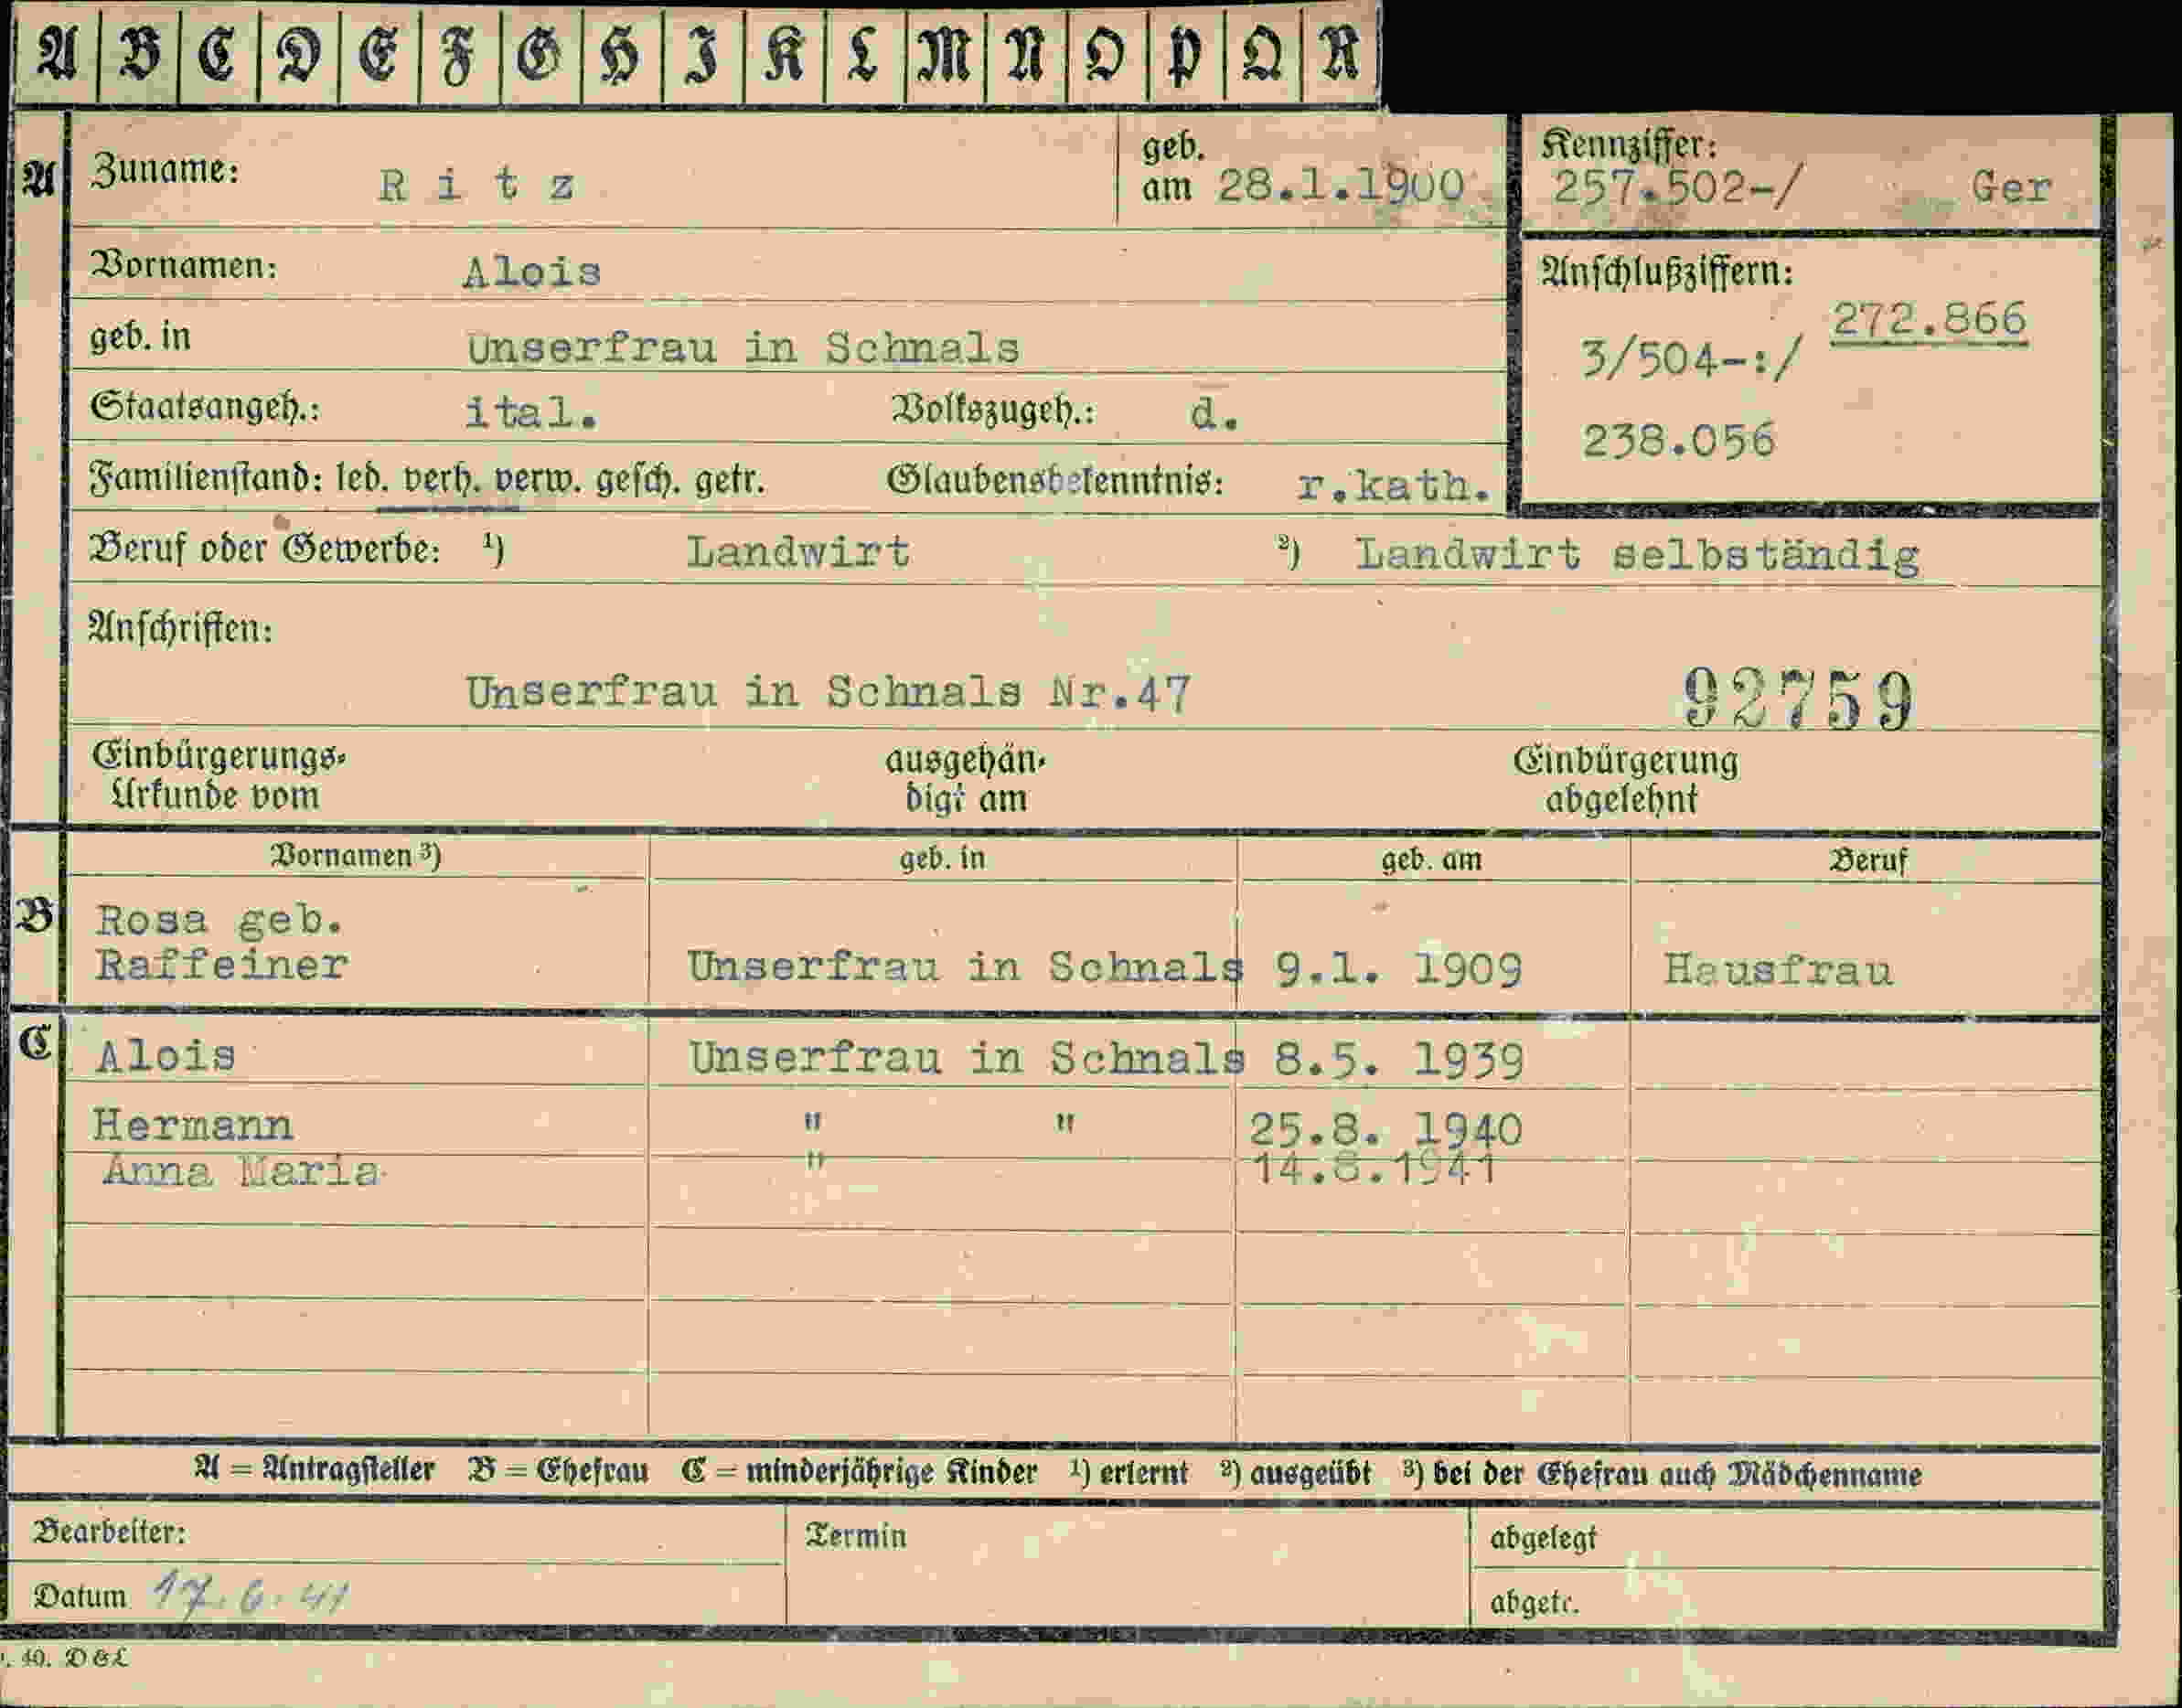 A B C D E F G H I K L M N O P Q R
A Zuname: Ritz geb. am 28.1.1900 Kennziffer: 257.502-/ Ger
Vornamen: Alois
Anschlußziffern:
272.866
3/504-:/
238.056
geb. in Unserfrau in Schnals
Staatsangeh.: ital. Volkszugeh.: d.
Familienstand: led. verh. verw. gesch. getr. Glaubensbekenntnis: r.kath.
Beruf oder Gewerbe: ¹) Landwirt ²) Landwirt selbständig
Anschriften:
Unserfrau in Schnals Nr.47 92759
Einbürgerungs- ausgehän- Einbürgerung
Urkunde vom digt am abgelehnt
Vornamen ³) geb. in geb. am Beruf
B Rosa geb.
Raffeiner Unserfrau in Schnals 9.1. 1909 Hausfrau
C Alois Unserfrau in Schnals 8.5. 1939
Hermann " " 25.8. 1940
Anna Maria " 14.8.1941
A = Antragsteller B = Ehefrau C = minderjährige Kinder ¹) erlernt ²) ausgeübt ³) bei der Ehefrau auch Mädchenname
Bearbeiter: Termin abgelegt
Datum 17.6.41 abgetr.
40. D&L